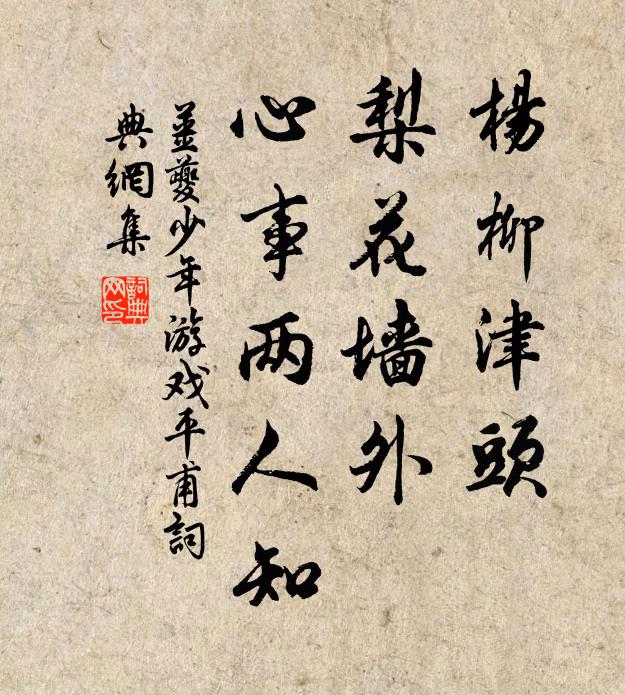 楊柳津頭
梨花墻外
心事两人知
姜夔少年游戏平甫詞
典網集
詞典
网印